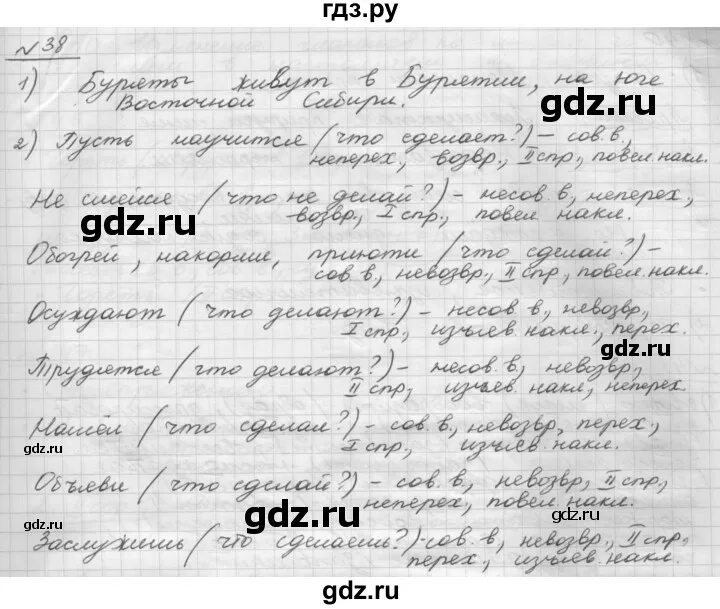 гдз.ру
№ 38
1) Буряты живут в Бурятии, на юге
Восточной Сибири.
gdz.ru
2) Пусть научится (что сделает?) – сов. в.,
неперех., возвр., II спр., повел. накл.
Не смейся (что не делай?) – несов. в, неперех.,
gdz.ru
возвр., I спр., повел. накл.
gdz.ru
Обогрей, накорми, приюти (что сделай?) –
сов. в, невозвр., II спр., повел. накл.
Осуждают (что делают?) – несов. в, невозвр.,
gdz.ru
I спр., изъяв. накл., перех.
gdz.ru
Трудятся (что делают?) – несов. в, невозвр.,
II спр., изъяв. накл, неперех.
gdz.ru
Нашёл (что сделал?) – сов. в, невозвр., перех.,
gdz.ru
I спр., изъяв. накл.
gdz.ru
Объяви (что сделай?) – сов. в., невозвр., II спр.,
неперех., повел. накл.
gdz.ru
gdz.ru
Заслужишь (что сделаешь?) – сов. в, невозвр., II спр.,
перех., изъяв. накл.
gdz.ru
gdz.ru